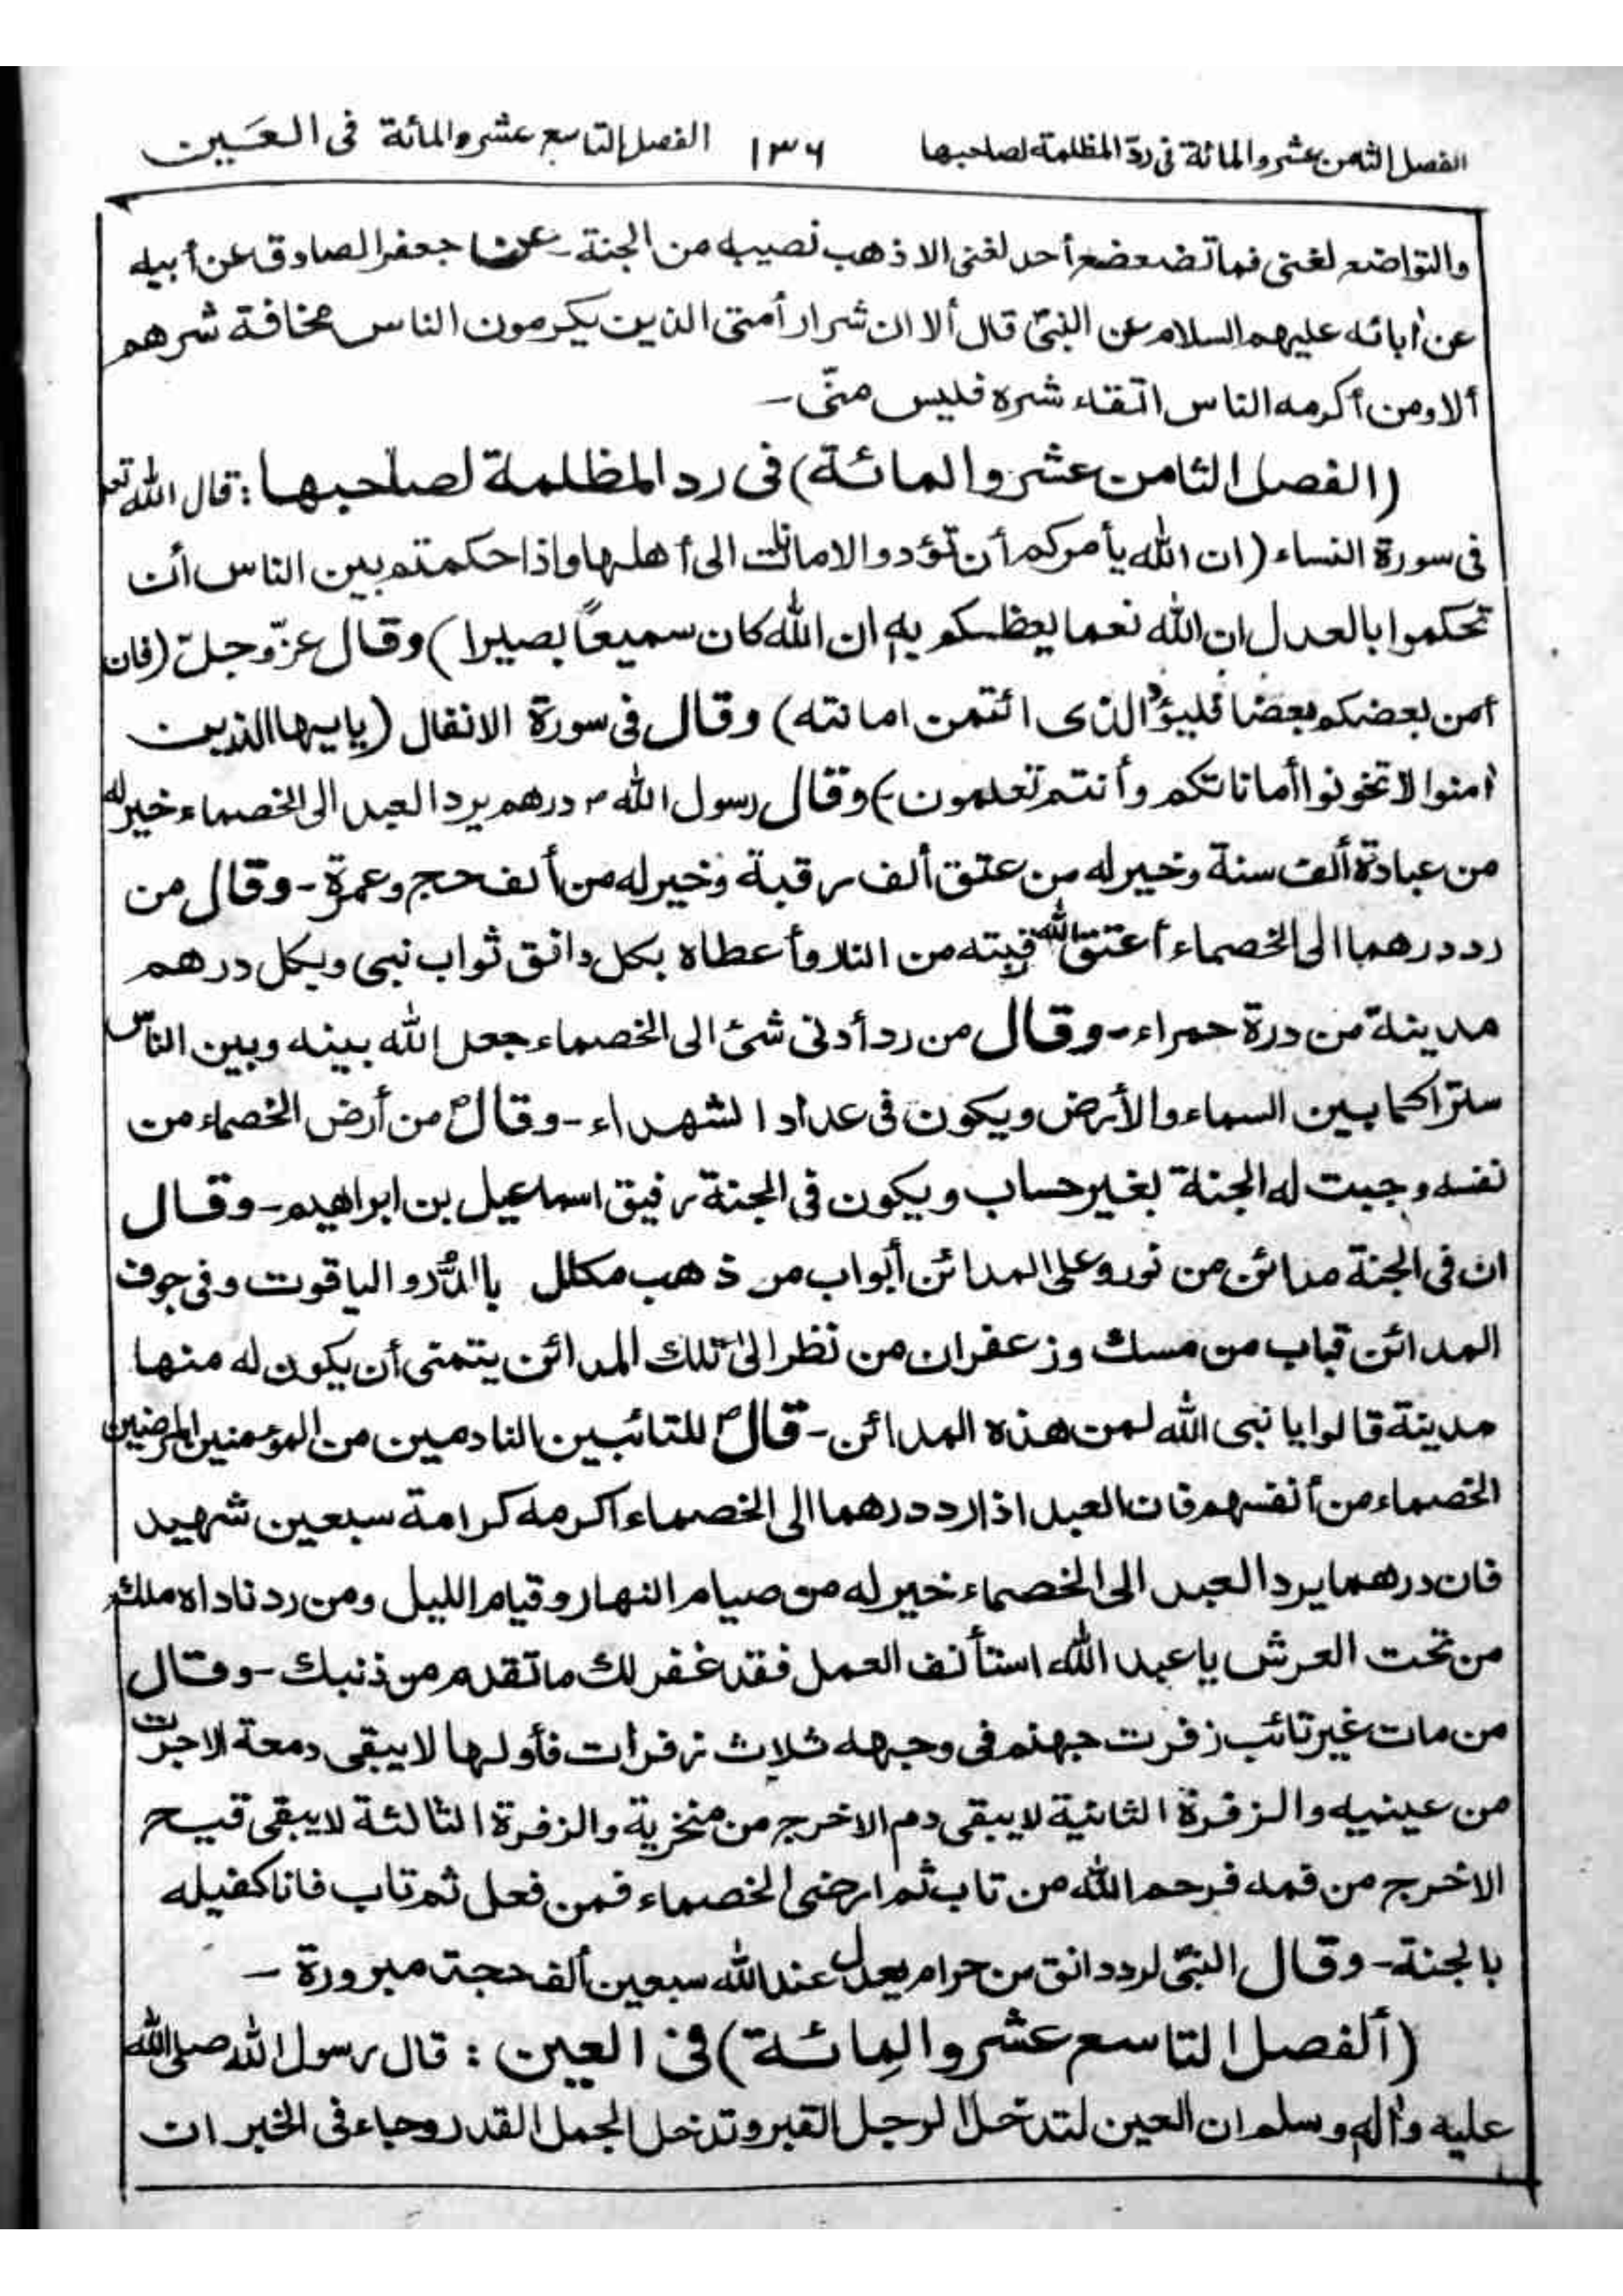 الفصل الثامن عشر والمائة فى ردّ المظلمة لصاحبها ١٣٦ الفصل التاسع عشر والمائة فى العَين
والتواضع لغنى فما تضعضع أحد لغنى الا ذهب نصيبه من الجنة - عن جعفر الصادق عن أبيه
عن اٰبائه عليهم السلام عن النبىّ قال ألا ان شرار أمتى الذين يكرمون الناس مخافة شرهم
ألا ومن أكرمه الناس اتقاء شره فليس منّى -
(الفصل الثامن عشر والمائة) فى رد المظلمة لصاحبها : قال الله تعم
فى سورة النساء (ان الله يأمركم أن تؤدوا الامانات الى أهلها واذا حكمتم بين الناس أن
تحكموا بالعدل ان الله نعما يعظكم به ان الله كان سميعاً بصيرا) وقال عزّ وجلّ (فان
أمن بعضكم بعضا فليؤد الذى ائتمن امانته) وقال فى سورة الانفال (يايها الذين
اٰمنوا لا تخونوا أماناتكم وأنتم تعلمون) وقال رسول الله ص درهم يرد العبد الى الخصماء خير له
من عبادة ألف سنة وخير له من عتق ألف رقبة وخير له من ألف حج وعمرة - وقال من
رد درهما الى الخصماء أعتق الله قبته من النار وأعطاه بكل دانق ثواب نبى وبكل درهم
مدينة من درة حمراء - وقال من رد أدنى شئ الى الخصماء جعل الله بينه وبين الناس
سترا كما بين السماء والأرض ويكون فى عداد الشهداء - وقالؐ من أرض الخصماء من
نفسه وجبت له الجنة بغير حساب ويكون فى الجنة رفيق اسماعيل بن ابراهيم - وقال
ان فى الجنة مدائن من نور وعلى المدائن أبواب من ذهب مكلل باالدُّر والياقوت وفى جوف
المدائن قباب من مسك وزعفران من نظر الى تلك المدائن يتمنى أن يكون له منها
مدينة قالوا يا نبى الله لمن هذه المدائن - قالؐ للتائبين النادمين من المؤمنين المرضين
الخصماء من أنفسهم فان العبد اذا رد درهما الى الخصماء اكرمه كرامة سبعين شهيد
فان درهما يرد العبد الى الخصماء خير له من صيام النهار وقيام الليل ومن رد ناداه ملك
من تحت العرش يا عبد الله استأنف العمل فقد غفر لك ما تقدم من ذنبك - وقال
من مات غير تائب زفرت جهنم فى وجهه ثلاث زفرات فأولها لا يبقى دمعة الا جرت
من عينيه والزفرة الثانية لا يبقى دم الا خرج من منخريه والزفرة الثالثة لا يبقى قيح
الا خرج من فمه فرحم الله من تاب ثم ارضى الخصماء فمن فعل ثم تاب فانا كفيله
بالجنة - وقال النبىّ لرد دانق من حرام يعدل عند الله سبعين ألف حجة مبرورة -
(ألفصل التاسع عشر والمائة) فى العين : قال رسول الله صلى الله
عليه واٰله وسلم ان العين لتدخل الرجل القبر وتدخل الجمل القدر وجاء فى الخبر ان